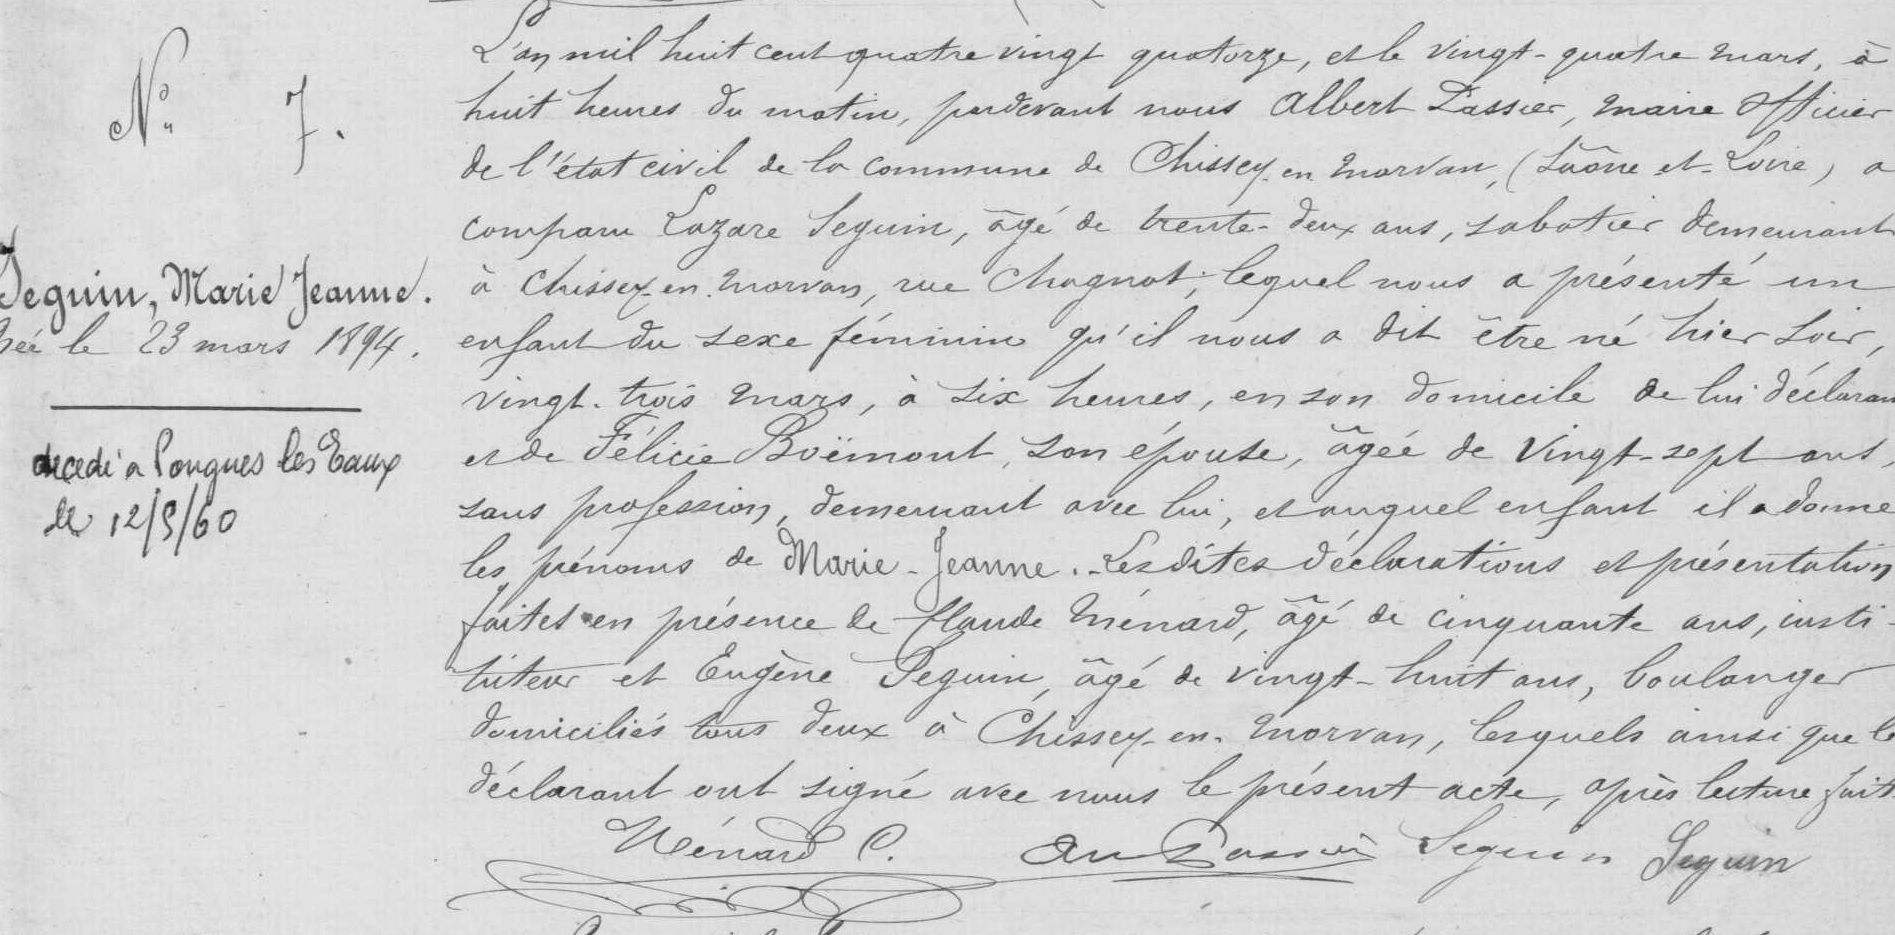 N° 7.
Seguin, Marie Jeanne.
Née le 23 mars 1894.
décédé a Pougues les Eaux
le 12/5/60
L'an mil huit cent quatre vingt quatorze, et le vingt-quatre mars, à
huit heures du matin, pardevant nous Albert Dassier, maire officier
de l'état civil de la commune de Chissey-en-Morvan, (Saône et-Loire) a
comparu Lazare Seguin, âgé de trente-deux ans, sabotier demeurant
à Chissey-en-Morvan, rue Chagnot; lequel nous a présenté un
enfant du sexe féminin qu'il nous a dit être né hier soir,
vingt-trois mars, à six heures, en son domicile de lui déclaran
et de Félicie Boëmont, son épouse, âgée de vingt-sept ans,
sans profession, demeurant avec lui, et auquel enfant il a donné
les prénoms de Marie-Jeanne. Lesdites déclarations et présentation
faites en présence de Claude Ménard, âgé de cinquante ans, insti-
tuteur et Eugène Seguin, âgé de vingt-huit ans, boulanger
domiciliés tous deux à Chissey-en-Morvan, lesquels ainsi que le
déclarant ont signé avec nous le présent acte, après lecture fait
Ménard C. Seguin Seguin